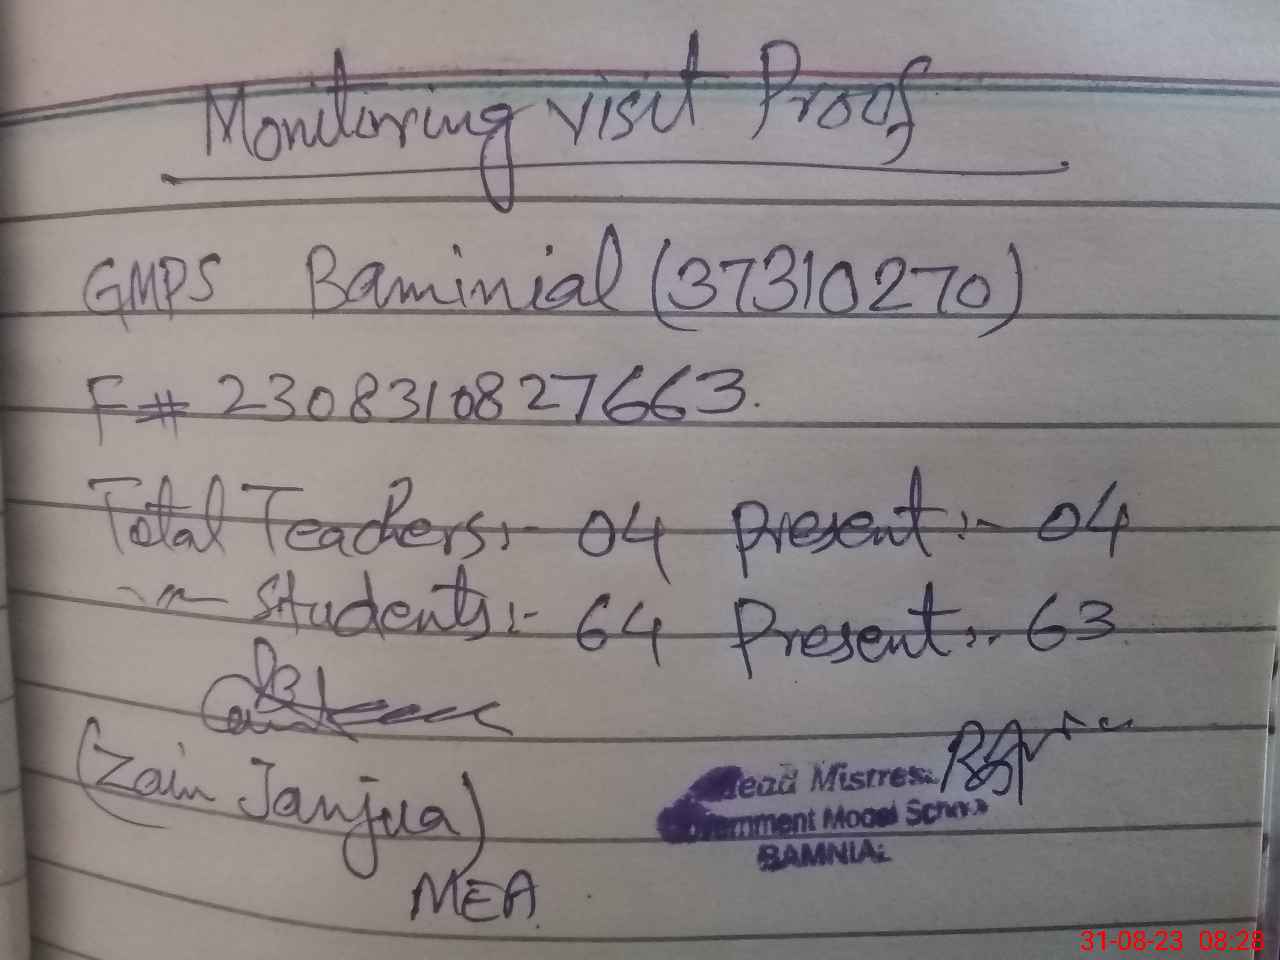 Monitoring visit Proof
GMPS Baminial (37310270)
F# 230831082 7663.
Total Teachers:- 04 Present:- 04
Students:- 64 Present:- 63
(Zain Janjua)
MEA
Head Mistress
Government Model School
BAMNIAL
31-08-23 08:28